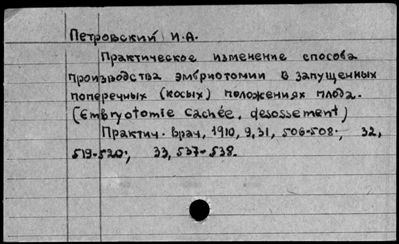 Петровский И.А.
Практическое изменение способа
производства эмбриотомии в запущенных
поперечных (косых) положениях плода.
(Embryotomie cachée, desossement)
Практич. врач, 1910, 9, 31, 506-508;, 32,
519-520;, 33, 537-538.